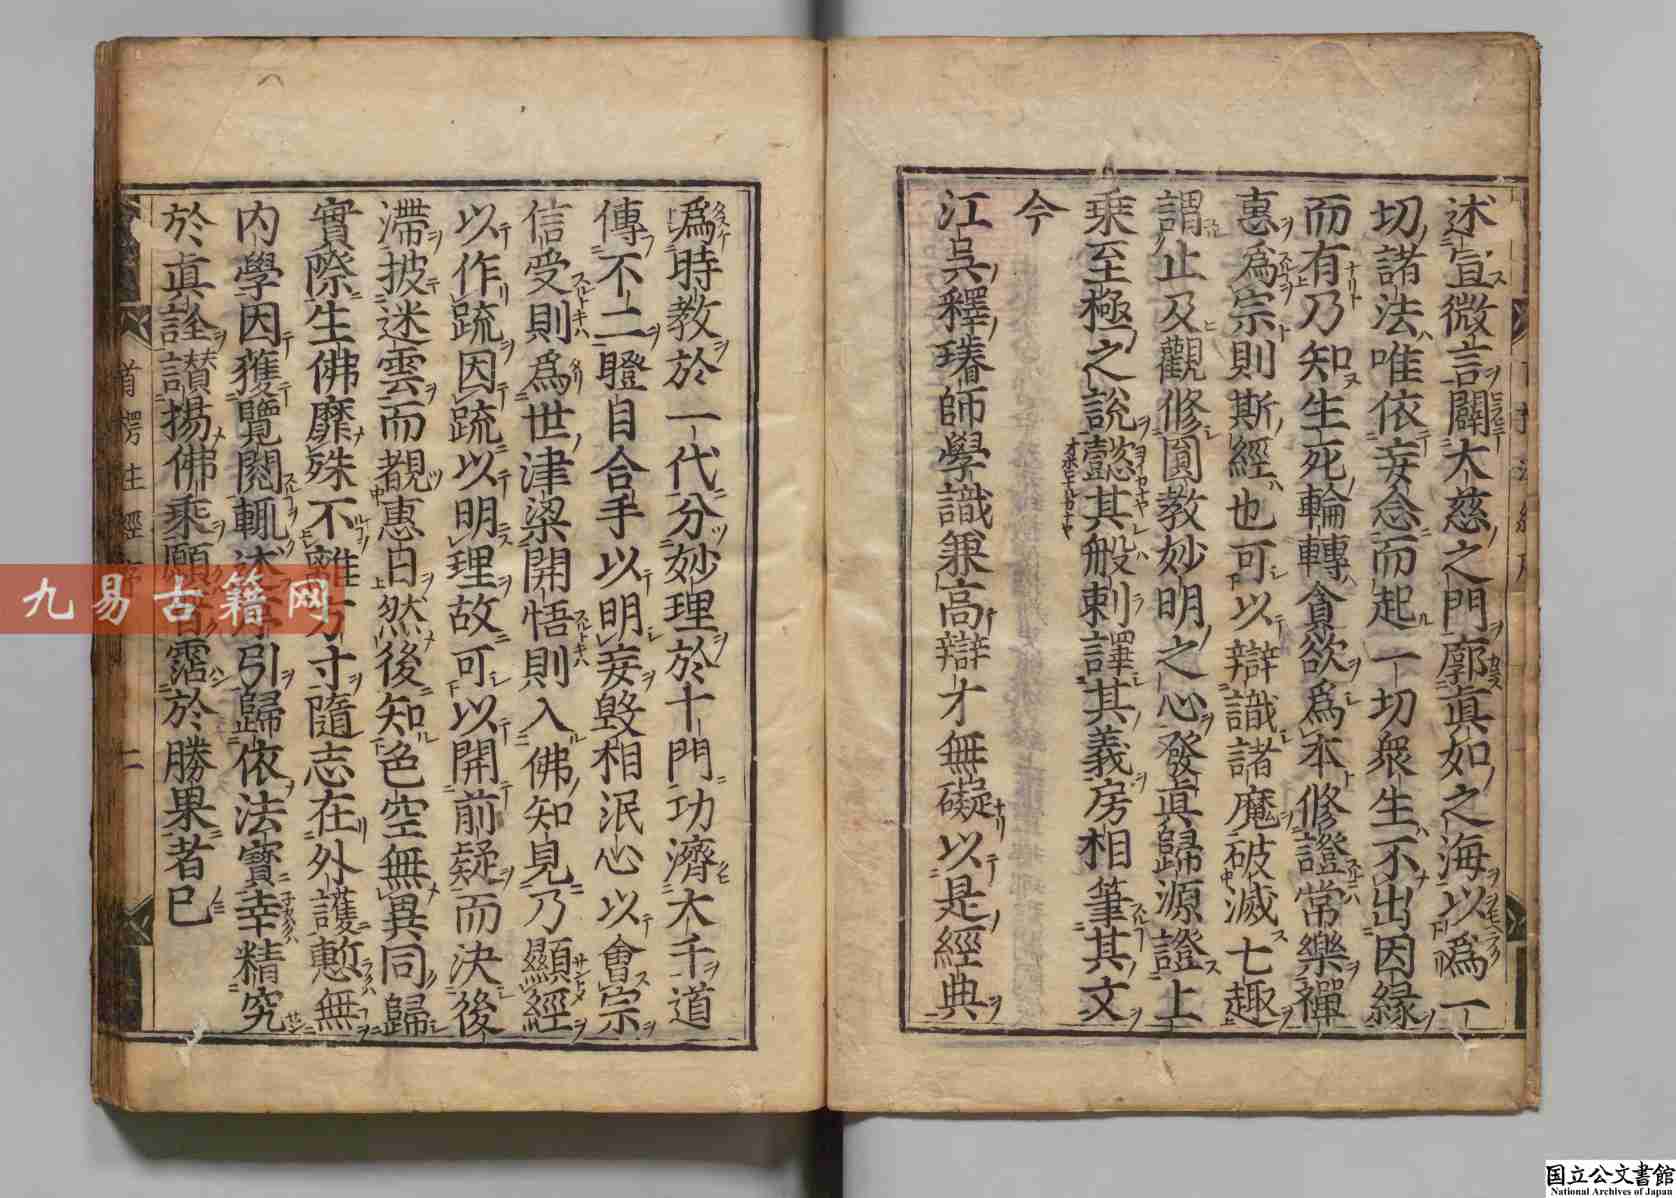 述宣微言闢大慈之門廓眞如之海以爲一
切諸法唯依妄念而起一切衆生不出因緣
而有乃知生死輪轉貪欲爲本修證常樂禪
惠爲宗則斯經也可以辯識諸魔破滅七趣
謂止及觀修圓教妙明之心發眞歸源證上
乘至極之說懿其般剌譯其義房相筆其文
今
江吳釋璿師學識兼高辯才無礙以是經典
爲時教於一代分妙理於十門功濟大千道
傳不二瞪目合手以明妄毀相泯心以會宗
信受則爲世津梁開悟則入佛知見乃顯經
以作疏因疏以明理故可以開前疑而決後
滯披迷雲而覩惠日然後知色空無異同歸
實際生佛靡殊不離方寸隨志在外護慙無
內學因獲覽閱輒述序引歸依法寶幸精究
於眞詮讃揚佛乘願霑於勝果者已
首楞 經序
二
九易古籍网
国立公文書館
National Archives of Japan